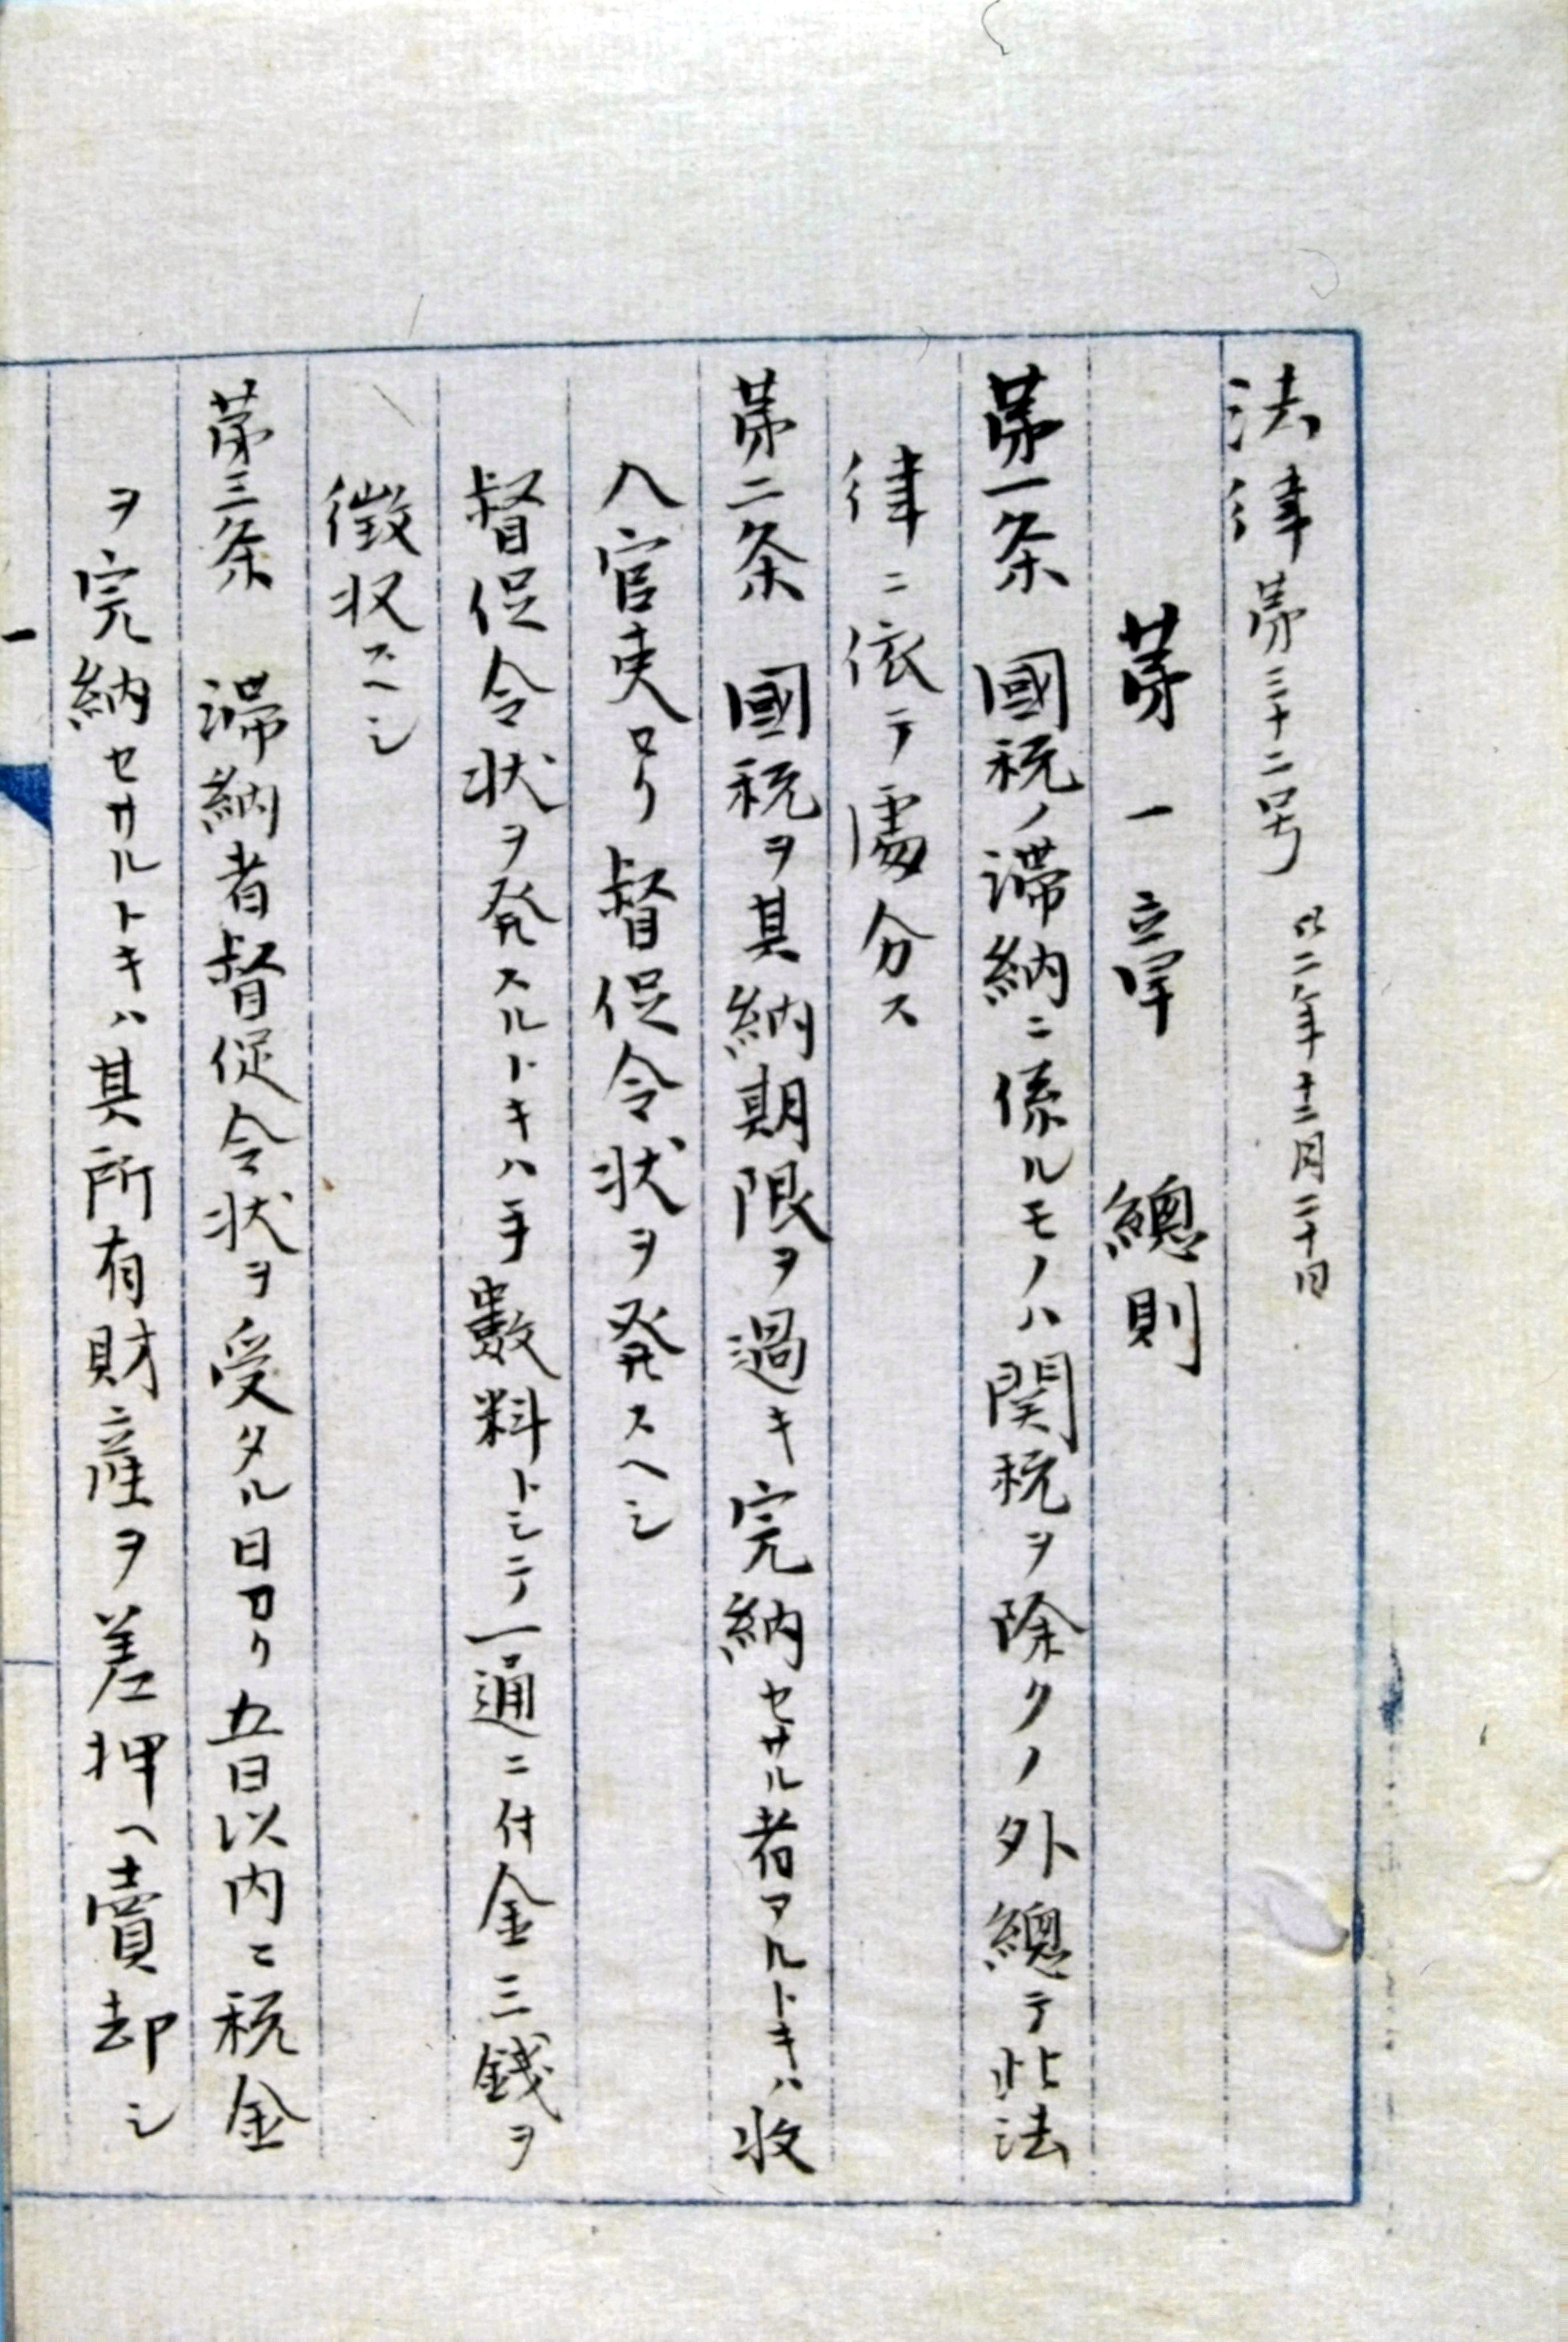 法律第三十二号 廿二年十二月二十日
第一章 總則
第一条 國税ノ滞納ニ係ルモノハ関税ヲ除クノ外總テ此法
律ニ依テ處分ス
第二条 國税ヲ其納期限ヲ過キ完納セサル者アルトキハ收
入官吏ヨリ督促令状ヲ発スヘシ
督促令状ヲ発スルトキハ手數料トシテ一通ニ付金三錢ヲ
徴収スヘシ
第三条 滞納者督促令状ヲ受タル日ヨリ五日以内ニ税金
ヲ完納セサルトキハ其所有財産ヲ差押ヘ賣却シ
一